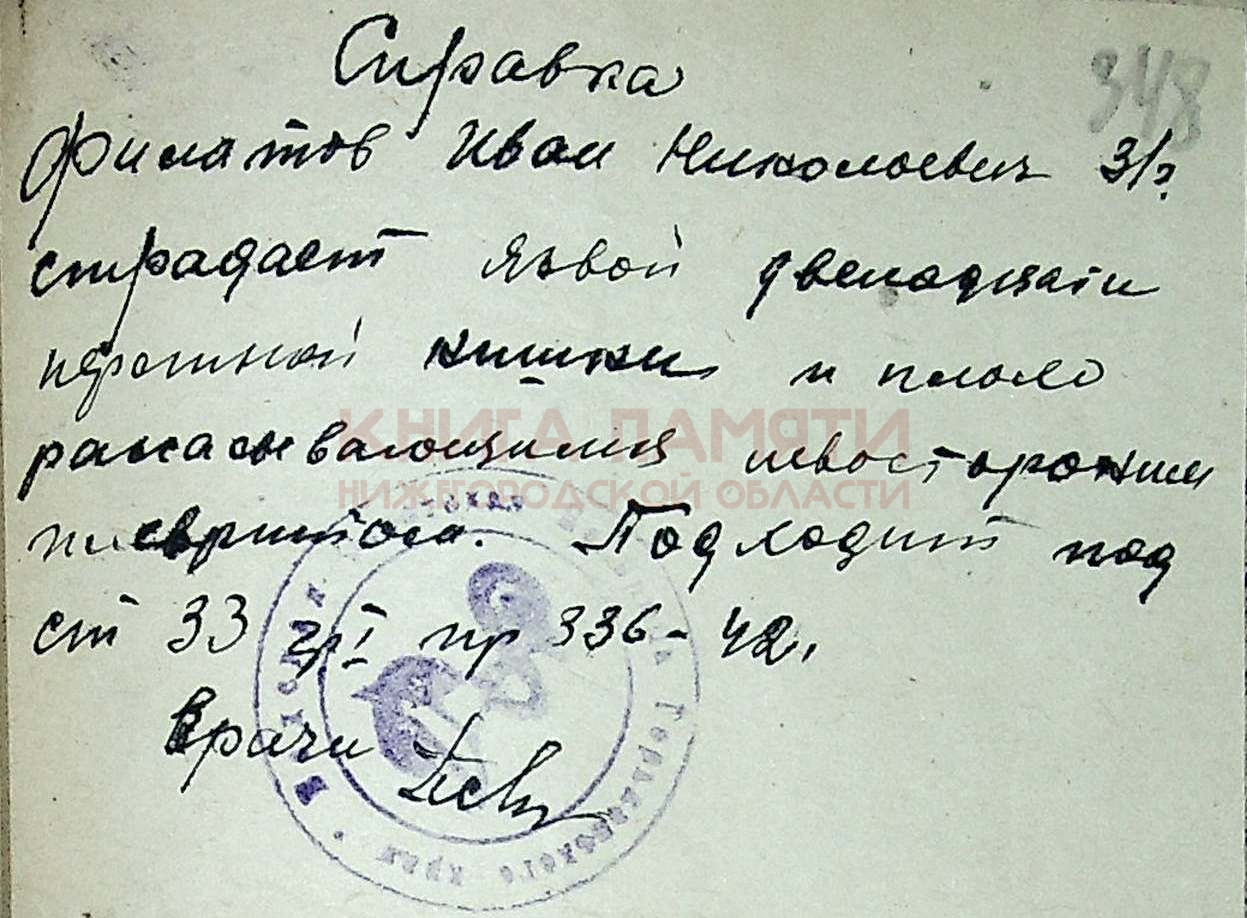 348
Справка
Филатов Иван Николаевич 31 г.
страдает язвой двенадцати
перстной кишки и плохо
рассасывающимся левосторонним
КНИГА ПАМЯТИ
НИЖЕГОРОДСКОЙ ОБЛАСТИ
плевритом. Подходит под
ст 33 гр I пр 336-42.
Врачи
Горьковского края